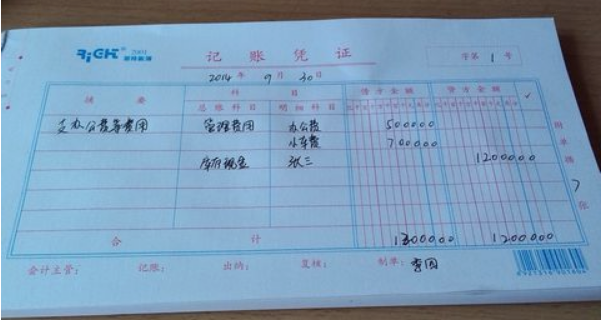 RiGHT 2001
记 账 凭 证
字第 1 号
2014 年 9 月 30 日
摘 要 科 目 借方金额 贷方金额 ✓
总账科目 明细科目
支办公费等费用 管理费用 办公费 500000
小车费 700000
库存现金 张三 1200000
附单据 7 张
合 计 1200000 1200000
会计主管: 记账: 出纳: 复核: 制单: 李园